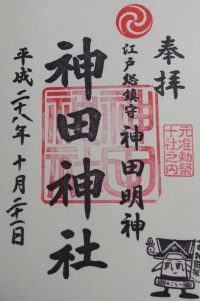 奉拝
元准勅祭
十社之内
江戸総鎮守 神田明神
神田神社
平成二十八年 十月二十一日